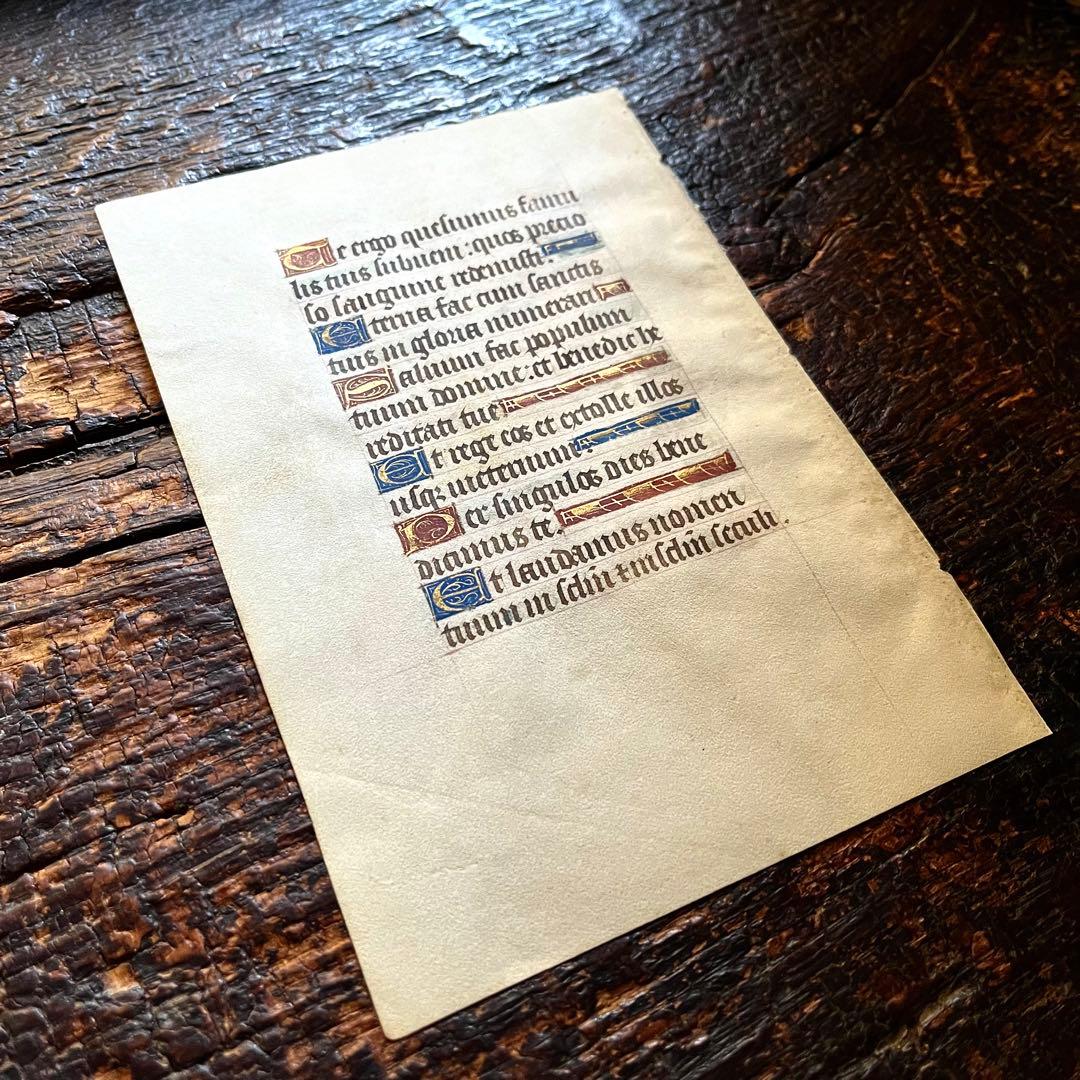 Te ergo quesumus famu
lis tuis subueni: quos precio
so sanguine redemisti
Eterna fac cum sanctis
tuis in gloria numerari
Saluum fac populum
tuum domine: et benedic he
reditati tue
Et rege eos et extolle illos
usqꝫ ineternum
Per singulos dies bene
dicimus te.
Et laudamus nomen
tuum in sclm̄ ⁊ in sclm̄ seculi.